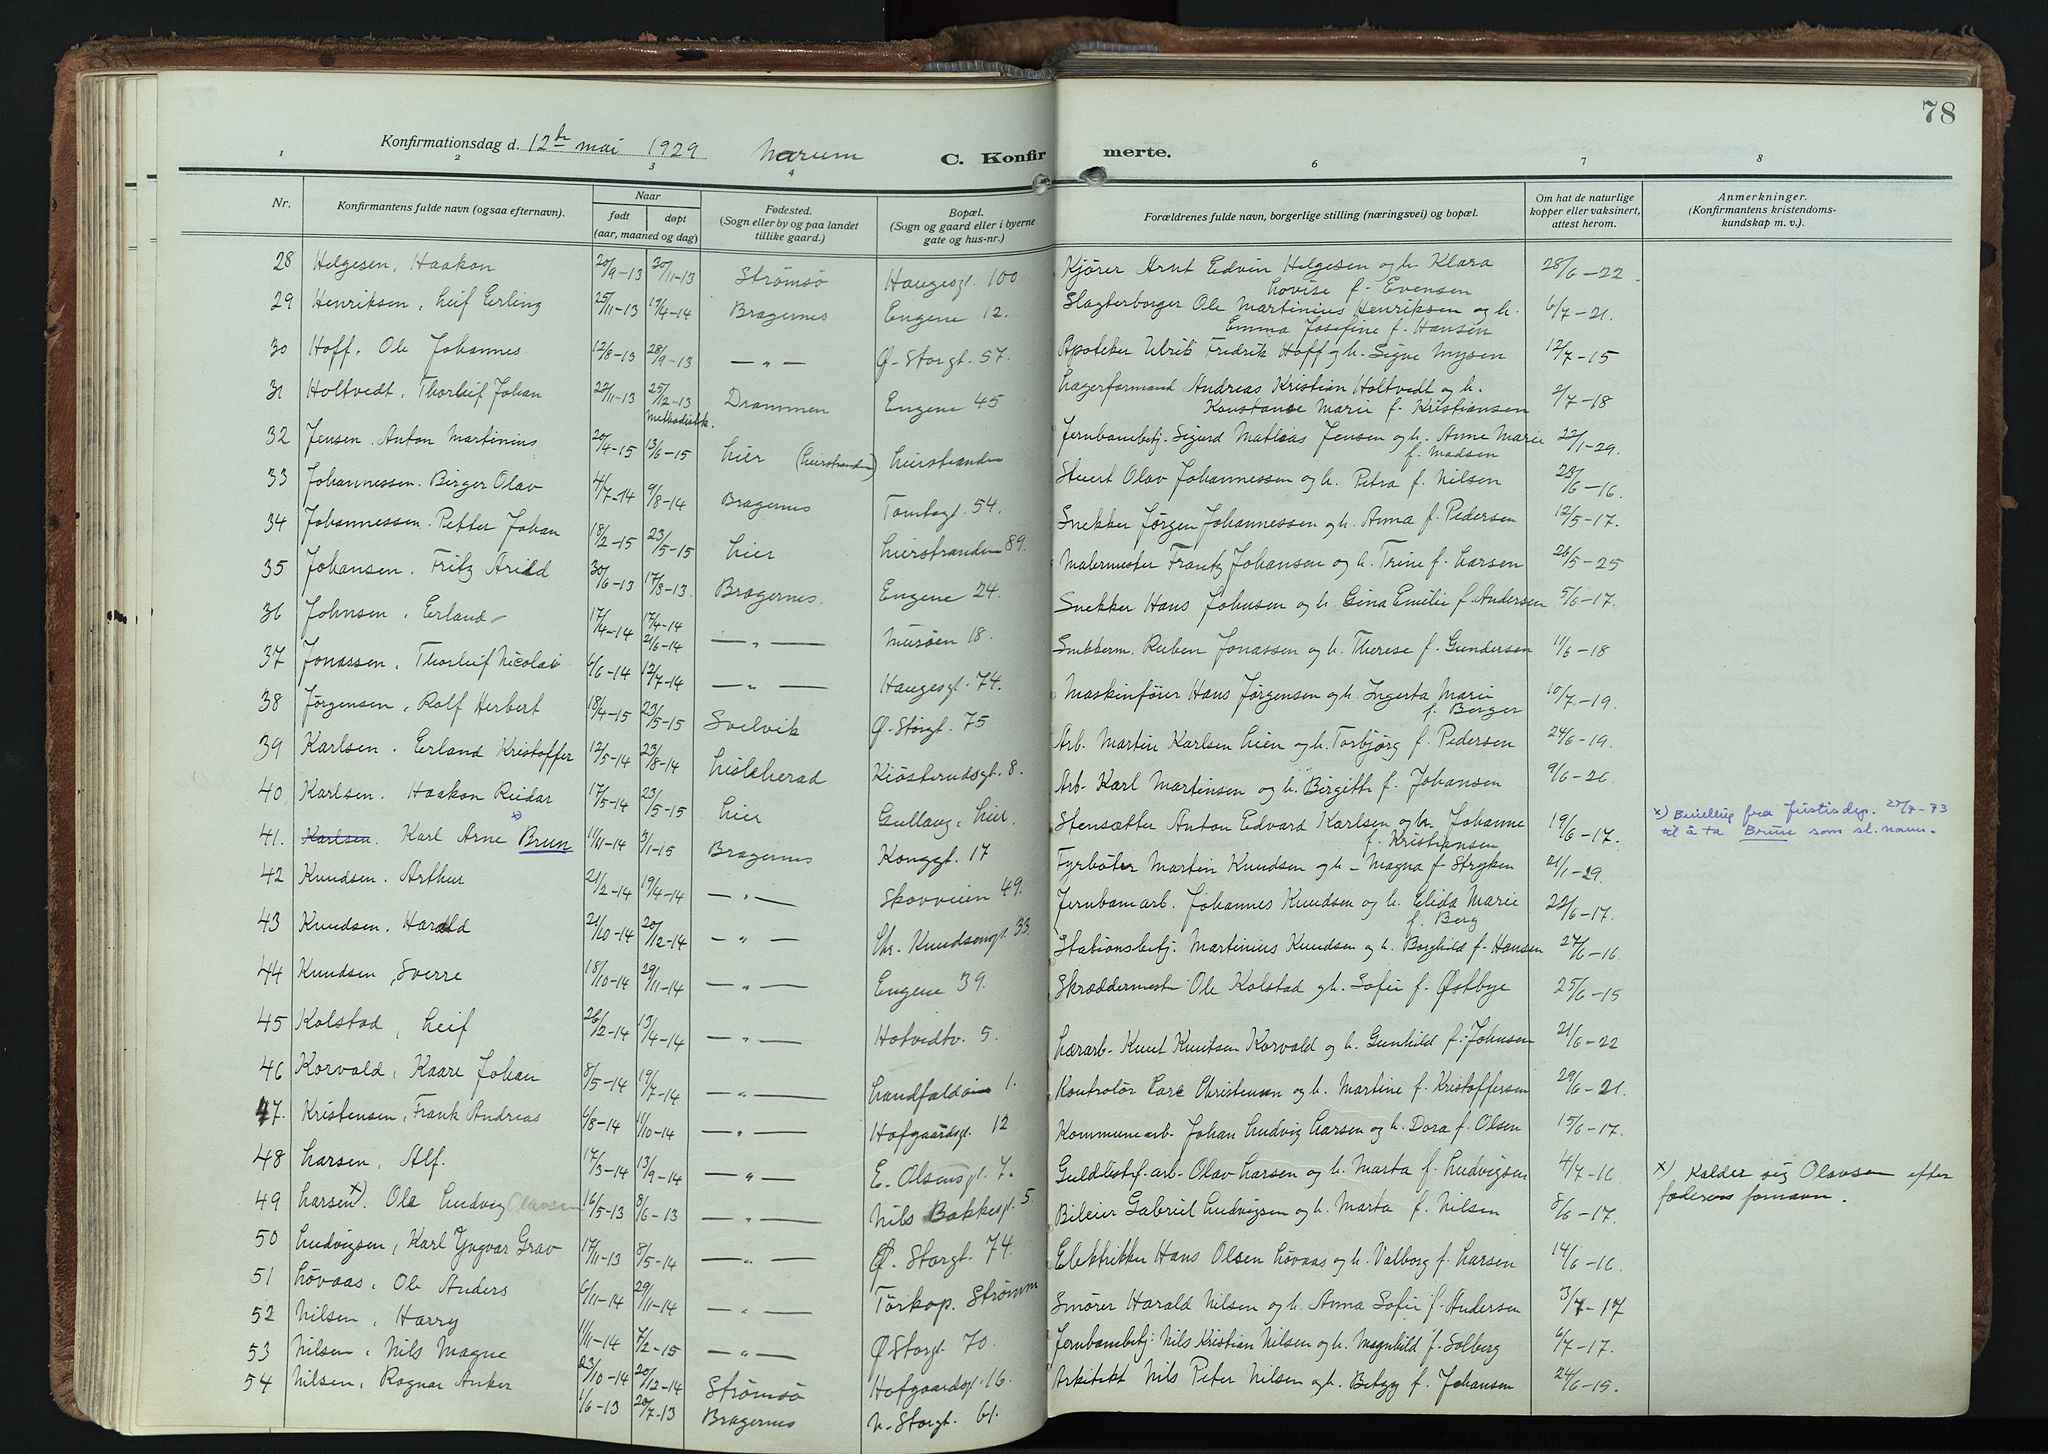 78
Konfirmationsdag d. 12te mai 1929 Marum C. Konfir merte.
1 2 3 4 6 7 8
Nr. Konfirmantens fulde navn (ogsaa efternavn). Naar født døpt (aar, maaned og dag) Fødested. (Sogn eller by og paa landet tillike gaard.) Bopæl. (Sogn og gaard eller i byerne gate og hus-nr.) Forældrenes fulde navn, borgerlige stilling (næringsvei) og bopæl. Om hat de naturlige kopper eller vaksinert, attest herom. Anmerkninger. (Konfirmantens kristendoms-kundskap m. v.).
28 Helgesen, Haakon 20/9-13 30/11-13 Strømsø Haugesgt. 100 Kjører Arnt Edvin Helgesen og h. Klara Lovise f. Evensen 28/6-22
29 Henriksen, Leif Erling 25/11-13 19/4-14 Bragernes Engene 12. Slagterborger Ole Martinius Henriksen og h. Emma Josefine f. Hansen 6/7-21.
30 Hoff, Ole Johannes 12/8-13 28/9-13 —„— Ø. Storgt. 57. Apoteker Ulrik Fredrik Hoff og h. Signe Mysen 12/7-15
31 Holtvedt, Thorleif Johan 28/11-13 25/12-13 Methodistk. Drammen Engene 45 Lagerformand Andreas Kristian Holtvedt og h. Konstanse Marie f. Kristiansen 2/7-18
32 Jensen, Anton Martinius 20/4-15 13/6-15 Lier (Lierstranden) Lierstranden Jernbanebetj. Sigurd Mathias Jensen og h. Anne Marie f. Madsen 22/1-29.
33 Johannessen, Birger Olav 4/7-14 9/8-14 Bragernes Tomtegt. 54. Stuert Olav Johannessen og h. Petra f. Nilsen 23/6-16.
34 Johannessen, Petter Johan 18/2-15 23/5-15 Lier Lierstranden 89. Snekker Jørgen Johannessen og h. Anna f. Pedersen 12/5-17.
35 Johansen, Fritz Arild 30/6-13 17/8-13. Bragernes. Engene 24. Malermester Frantz Johansen og h. Trine f. Larsen 26/5-25
36 Johnsen, Erland 17/4-14 17/4-14 21/6-14 —„— Murøen 18. Snekker Hans Johnsen og h. Gina Emilie f. Andersen 5/6-17.
37 Jonassen, Thorleif Nicolai 6/6-14 12/7-14 —„— Haugesgt. 74. Snekkerm. Ruben Jonassen og h. Therese f. Gundersen 11/6-18
38 Jørgensen, Rolf Herbert 18/4-15 23/5-15 Svelvik Ø. Storgt. 75 Maskinfører Hans Jørgensen og h. Ingerta Marie f. Berger 10/7-19.
39 Karlsen, Erland Kristoffer 12/5-14 23/8-14 Lisleherad Kiøsterudsgt. 8. Arb. Martin Karlsen Lien og h. Torbjørg f. Pedersen 24/6-19.
40 Karlsen, Haakon Reidar 17/5-14 23/5-15 Lier Gullaug, Lier Arb. Karl Martinsen og h. Birgitte f. Johansen 9/6-26
41. Karlsen. Karl Arne x) Brun 11/11-14 3/1-15 Bragernes Konggt. 17 Stensætter Anton Edvard Karlsen og h. Johanne f. Kristiansen 19/6-17. x) Bevilling fra Justisdep. 27/7-73 til å ta Brun som sl. navn.
42 Knudsen, Arthur 21/2-14 19/4-14 —„— Skovveien 49. Fyrbøter Martin Knudsen og h. Magna f. Stryken 21/1-29.
43 Knudsen, Harald 21/10-14 20/12-14 —„— Chr. Knudsensgt. 33. Jernbanearb. Johannes Knudsen og h. Elida Marie f. Berg 22/6-17.
44 Knudsen, Sverre 18/10-14 29/11-14 —„— Engene 39. Stationsbetj. Martinius Knudsen og h. Borghild f. Hansen 27/6-16
45 Kolstad, Leif 26/2-14 13/4-14 —„— Hotvedtv. 5. Skræddermester Ole Kolstad og h. Sofie f. Østbye 25/6-15
46 Korvald, Kaare Johan 8/5-14 19/7-14 —„— Landfaldøen 1. Lærarb. Knut Knutsen Korvald og h. Gunhild f. Johnsen 21/6-22
47. Kristensen, Frank Andreas 6/8-14 11/10-14 —„— Hofgaardsgt. 12 Kontrolør Lars Christensen og h. Martine f. Kristoffersen 29/6-21.
48 Larsen, Alf. 17/3-14 13/9-14 —„— E. Olsensgt. 7. Kommunearb. Johan Ludvig Larsen og h. Dora f. Olsen 15/6-17.
49 Larsen x). Ole Ludvig Olavsen 16/5-13 8/6-13 —„— Nils Bakkesgt. 5. Guldlistf. arb. Olav Larsen og h. Marta f. Ludvigsen 4/7-16 x) Kalder sig Olavsen efter faderens fornavn.
50 Ludvigsen, Karl Yngvar Grav 17/11-13 8/5-14 —„— Ø. Storgt. 74. Bileier Gabriel Ludvigsen og h. Marta f. Nilsen 8/6-17.
51 Løvaas, Ole Anders 6/11-14 29/11-14 —„— Tørkop. Strømm Elektriker Hans Olsen Løvaas og h. Valborg f. Larsen 14/6-16
52 Nilsen, Harry 11/11-14 7/2-15 —„— Ø Storgt. 70. Smører Harald Nilsen og h. Anna Sofie f. Andersen 3/7-17
53 Nilsen, Nils Magne 23/10-14 20/12-14 Strømsø Hofgaardsgt. 16. Jernbanebetj. Nils Kristian Nilsen og h. Magnhild f. Solberg 6/7-17.
54 Nilsen, Ragnar Anker 1/6-13 20/7-13 Bragernes N. Storgt. 61. Arkitekt Nils Peter Nilsen og h. Betzy f. Johansen 24/6-15.